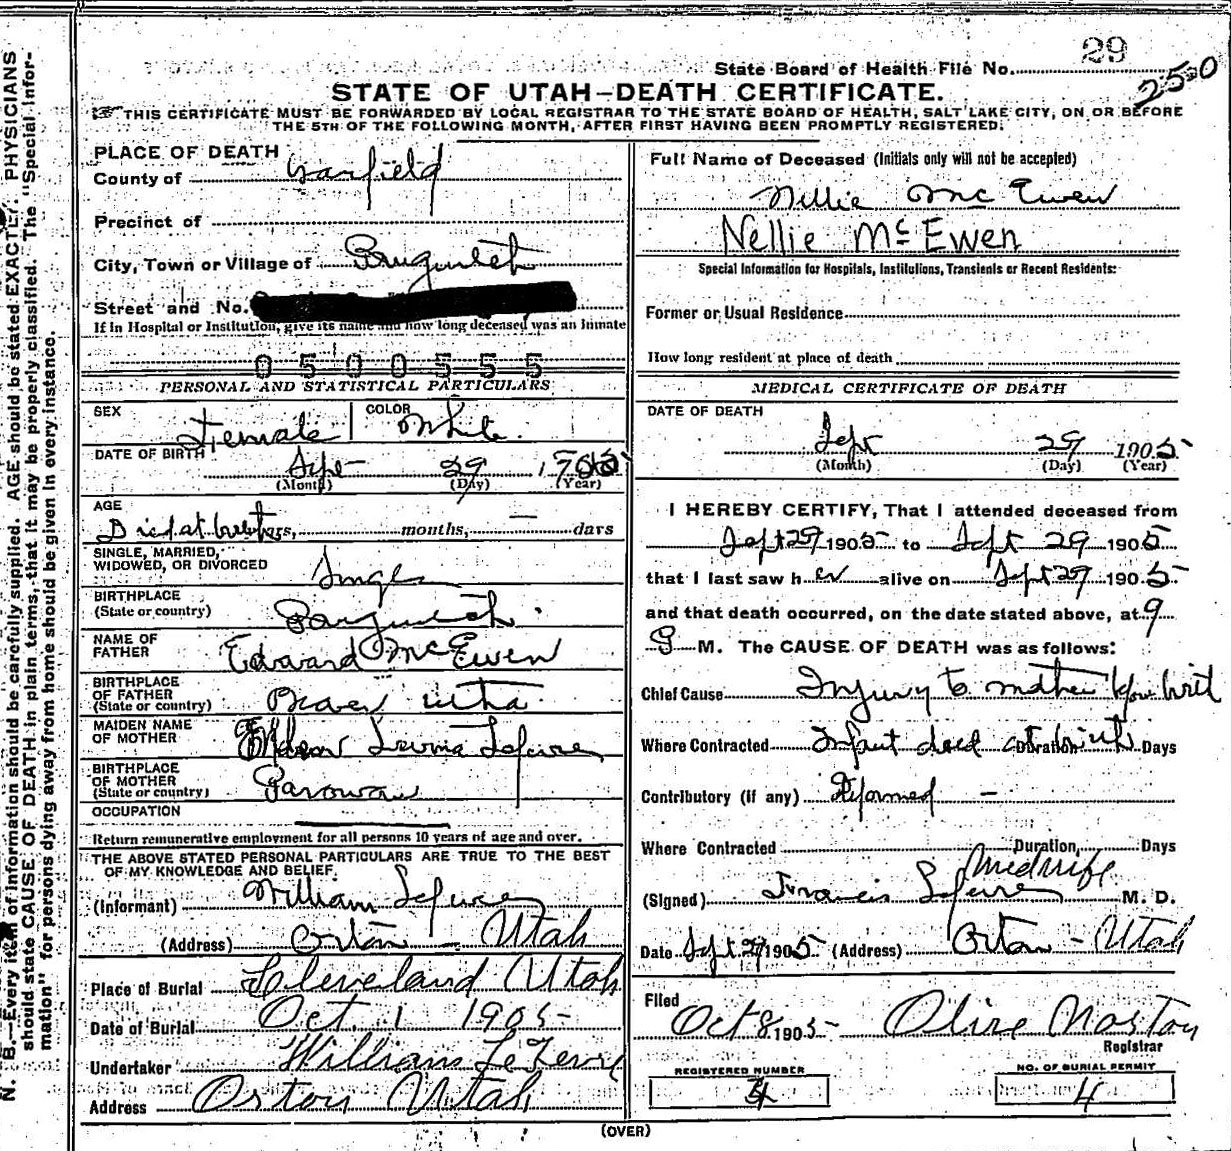 29
State Board of Health File No.
2500
STATE OF UTAH—DEATH CERTIFICATE.
THIS CERTIFICATE MUST BE FORWARDED BY LOCAL REGISTRAR TO THE STATE BOARD OF HEALTH, SALT LAKE CITY, ON OR BEFORE
THE 5TH OF THE FOLLOWING MONTH, AFTER FIRST HAVING BEEN PROMPTLY REGISTERED.
PLACE OF DEATH
County of Garfield
Precinct of
City, Town or Village of
Street and No.
If in Hospital or Institution, give its name and how long deceased was an inmate
0500555
PERSONAL AND STATISTICAL PARTICULARS
SEX Female COLOR White
DATE OF BIRTH Sept 29
(Month) (Day) (Year)
AGE
Died at birth months, — days
SINGLE, MARRIED,
WIDOWED, OR DIVORCED Single
BIRTHPLACE
(State or country)
NAME OF
FATHER Edward McEwen
BIRTHPLACE
OF FATHER
(State or country) Beaver Utha
MAIDEN NAME
OF MOTHER
BIRTHPLACE
OF MOTHER
(State or country) Parowan
OCCUPATION
Return remunerative employment for all persons 10 years of age and over.
THE ABOVE STATED PERSONAL PARTICULARS ARE TRUE TO THE BEST
OF MY KNOWLEDGE AND BELIEF.
(Informant) William Lefevre
(Address) Orton - Utah
Place of Burial Cleveland Utah
Date of Burial Oct. 1 1905
Undertaker William LeFevre
Address Orton Utah
Full Name of Deceased (Initials only will not be accepted)
Nellie Mc Ewen
Nellie Mc Ewen
Special Information for Hospitals, Institutions, Transients or Recent Residents:
Former or Usual Residence
How long resident at place of death
MEDICAL CERTIFICATE OF DEATH
DATE OF DEATH
Sept 29 1905
(Month) (Day) (Year)
I HEREBY CERTIFY, That I attended deceased from
Sept 29 1905 to Sept 29 1905
that I last saw her alive on Sept 29 1905
and that death occurred, on the date stated above, at 9
M. The CAUSE OF DEATH was as follows:
Chief Cause Injury to mother
Where Contracted Infant dead at birth Duration Days
Contributory (if any) Deformed —
Where Contracted Duration Days
Midwife
(Signed) Francis Lefevre M. D.
Date Sept 29 1905 (Address) Orton - Utah
Filed
Oct 8 1905 Olive Norton
Registrar
REGISTERED NUMBER
4
NO. OF BURIAL PERMIT
4
(OVER)
N. B.—Every item of information should be carefully supplied. AGE should be stated EXACTLY. PHYSICIANS
should state CAUSE OF DEATH in plain terms, that it may be properly classified. The "Special Infor-
mation" for persons dying away from home should be given in every instance.